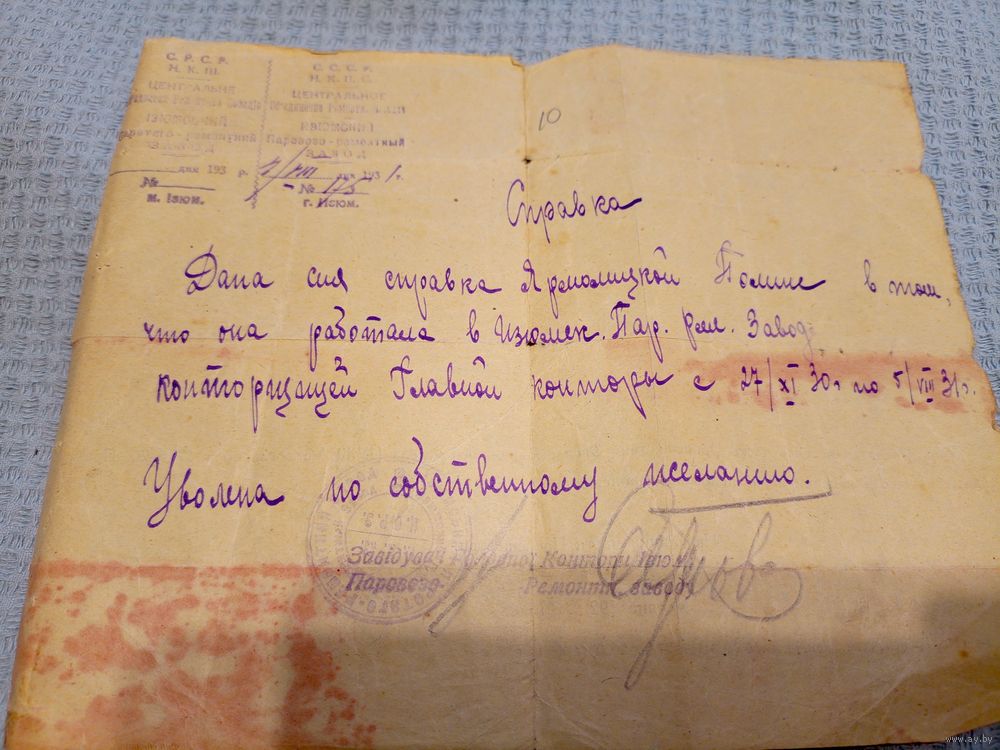 С. Р. С. Р.
Н. К. Ш.
ЦЕНТРАЛЬНЕ
ІЗЮМСЬКИЙ
ремонтний
ЗАВОД
дня 193 р.
№
м. Ізюм.
С. С. С. Р.
Н. К. П. С.
ЦЕНТРАЛЬНОЕ
ИЗЮМСКИЙ
Паровозо-ремонтный
ЗАВОД
7/VIII дня 1931 г.
№ 175
г. Изюм.
10
Справка
Дана сия справка Ярмолицкой Полине в том,
что она работала в Изюмск. Пар. рем. Завод
конторщицей Главной конторы с 27/XI 30г по 5/VIII 31г.
Уволена по собственному желанию.
Завідувач Головної Контори Ізюм
Паровозо- Ремонтн заводу
www.ay.by